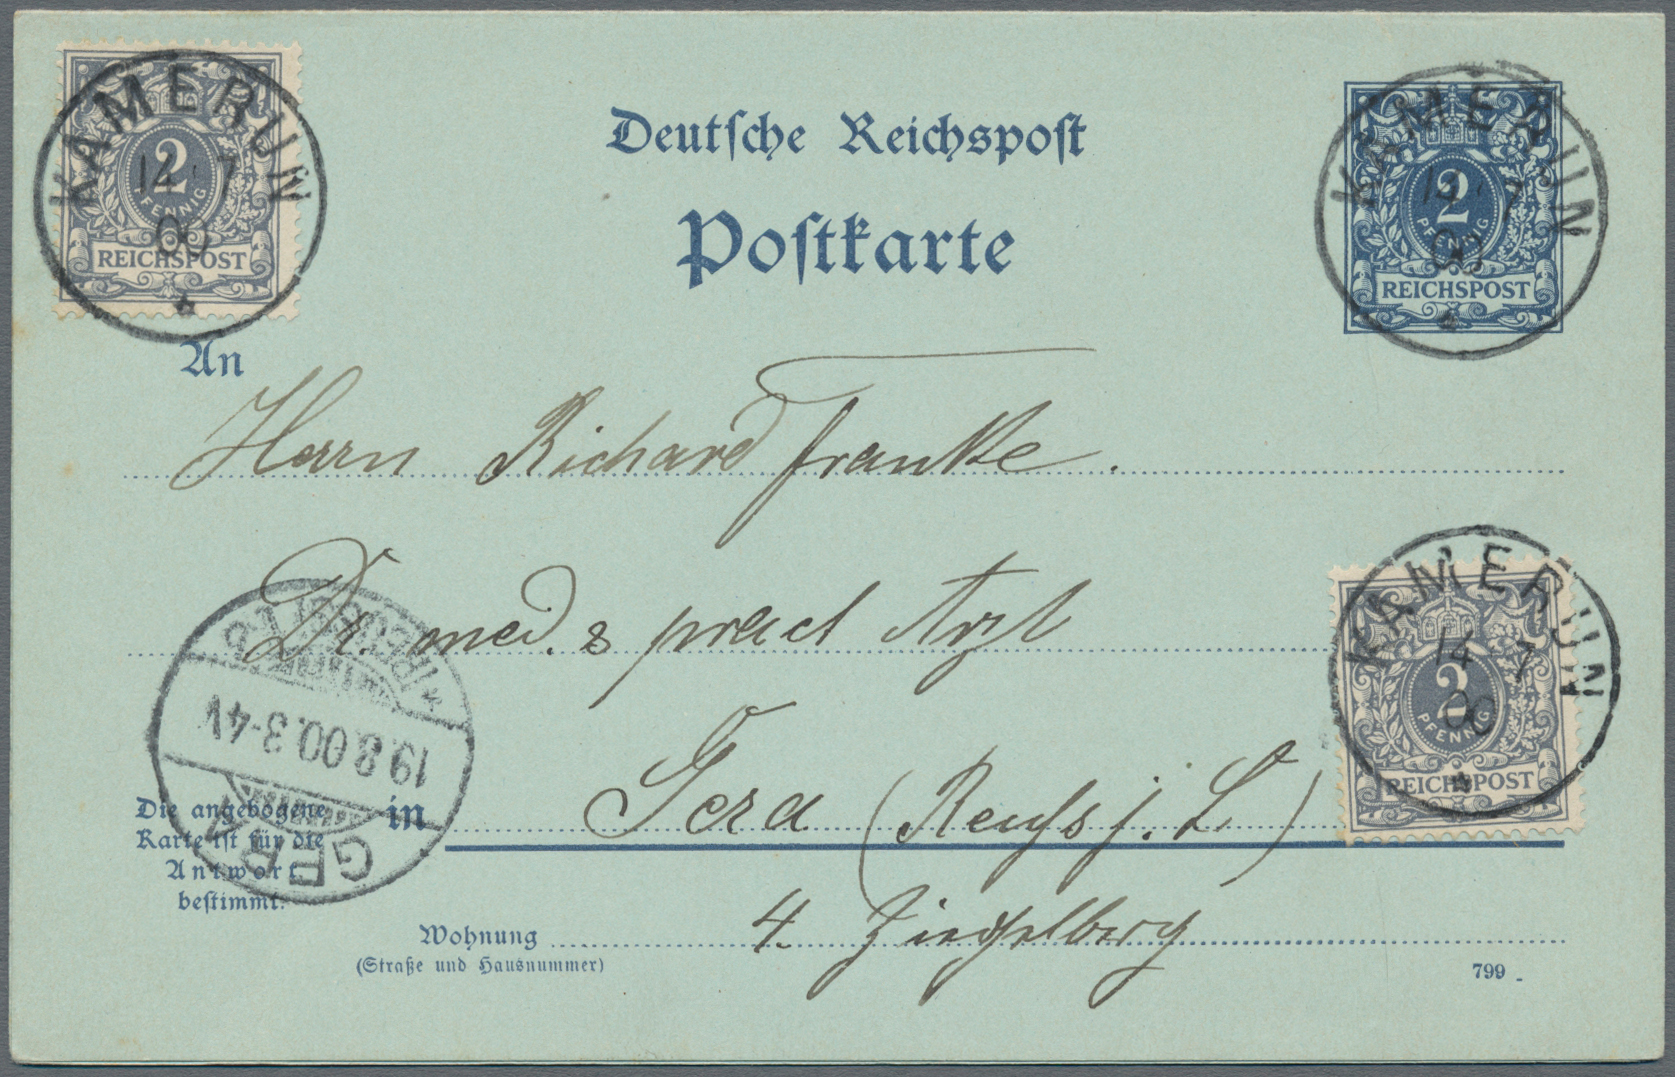 KAMERUN
14 7
00
2
PFENNIG
REICHSPOST
Deutsche Reichspost
Postkarte
KAMERUN
14 7
00
2
PFENNIG
REICHSPOST
An
Herrn Richard Franke.
Dr. med. & pract Arzt
KAMERUN
14 7
00
2
PFENNIG
REICHSPOST
* (REUSS) 1.d
19.8.00.3-4V
GERA
in Gera (Reuss j. L)
Die angebogene
Karte ist für die
Antwort
bestimmt.
4. Ziegelberg
Wohnung
(Straße und Hausnummer)
799